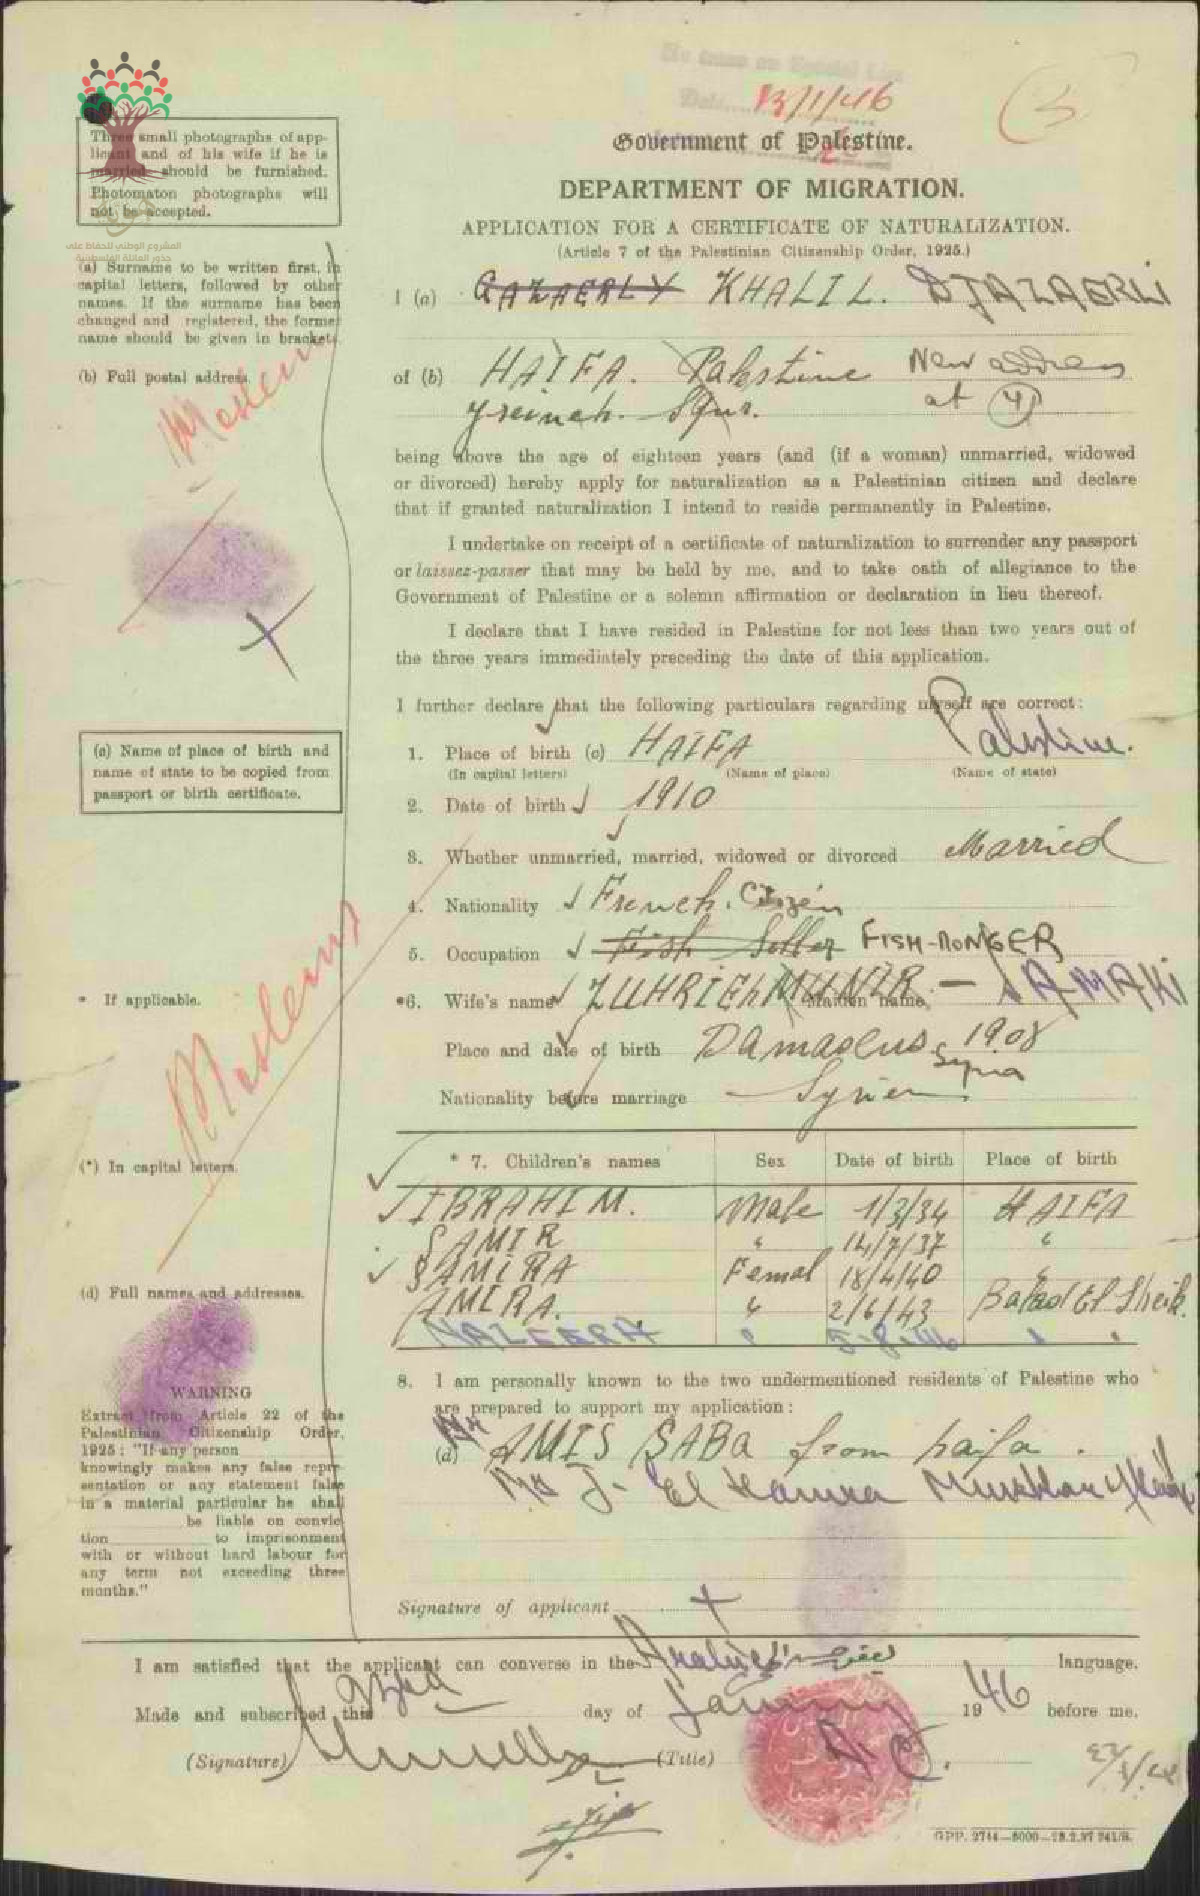 No trace on Special List
Date 13/1/46
Government of Palestine.
DEPARTMENT OF MIGRATION.
APPLICATION FOR A CERTIFICATE OF NATURALIZATION.
(Article 7 of the Palestinian Citizenship Order, 1925.)
Three small photographs of app-
licant and of his wife if he is
married should be furnished.
Photomaton photographs will
not be accepted.
المشروع الوطني للحفاظ على
جذور العائلة الفلسطينية
(a) Surname to be written first, in
capital letters, followed by other
names. If the surname has been
changed and registered, the former
name should be given in brackets.
I (a) GAZAERLY KHALIL. DJAZAERLI
(b) Full postal address.
Moslem
of (b) HAIFA. Palestine New address
Yreineh. Squr. at 4
being above the age of eighteen years (and (if a woman) unmarried, widowed
or divorced) hereby apply for naturalization as a Palestinian citizen and declare
that if granted naturalization I intend to reside permanently in Palestine.
I undertake on receipt of a certificate of naturalization to surrender any passport
or laissez-passer that may be held by me, and to take oath of allegiance to the
Government of Palestine or a solemn affirmation or declaration in lieu thereof.
I declare that I have resided in Palestine for not less than two years out of
the three years immediately preceding the date of this application.
I further declare that the following particulars regarding myself are correct:
(c) Name of place of birth and
name of state to be copied from
passport or birth certificate.
1. Place of birth (c) HAIFA Palestine.
(In capital letters) (Name of place) (Name of state)
2. Date of birth 1910
3. Whether unmarried, married, widowed or divorced Married
4. Nationality French. Citizen
5. Occupation Fish Seller FISH-MONGER
* If applicable.
*6. Wife's name ZUHRIEH MUNIR. — SAMAKI
Maiden name,
Place and date of birth Damascus 1908
Syria
Nationality before marriage Syrien
Moslems
(*) In capital letters.
* 7. Children's names Sex Date of birth Place of birth
IBRAHIM. Male 1/3/34 HAIFA
SAMIR " 14/7/37 "
SAMIRA Femal 18/4/40 "
AMIRA. " 2/6/43 Balad El Sheik.
NAZEERA " 5-8-46 " "
(d) Full names and addresses.
8. I am personally known to the two undermentioned residents of Palestine who
are prepared to support my application:
(d) Mr AMIS SABA from haifa.
Mr J. El Hamra Mukhtar
WARNING
Extract from Article 22 of the
Palestinian Citizenship Order,
1925: "If any person
knowingly makes any false repre-
sentation or any statement false
in a material particular he shall
be liable on convic-
tion to imprisonment
with or without hard labour for
any term not exceeding three
months."
Signature of applicant
I am satisfied that the applicant can converse in the Arabic language.
Made and subscribed this day of January 1946 before me.
(Signature) (Title)
GPP. 2744—5000—18.2.37 241/S.